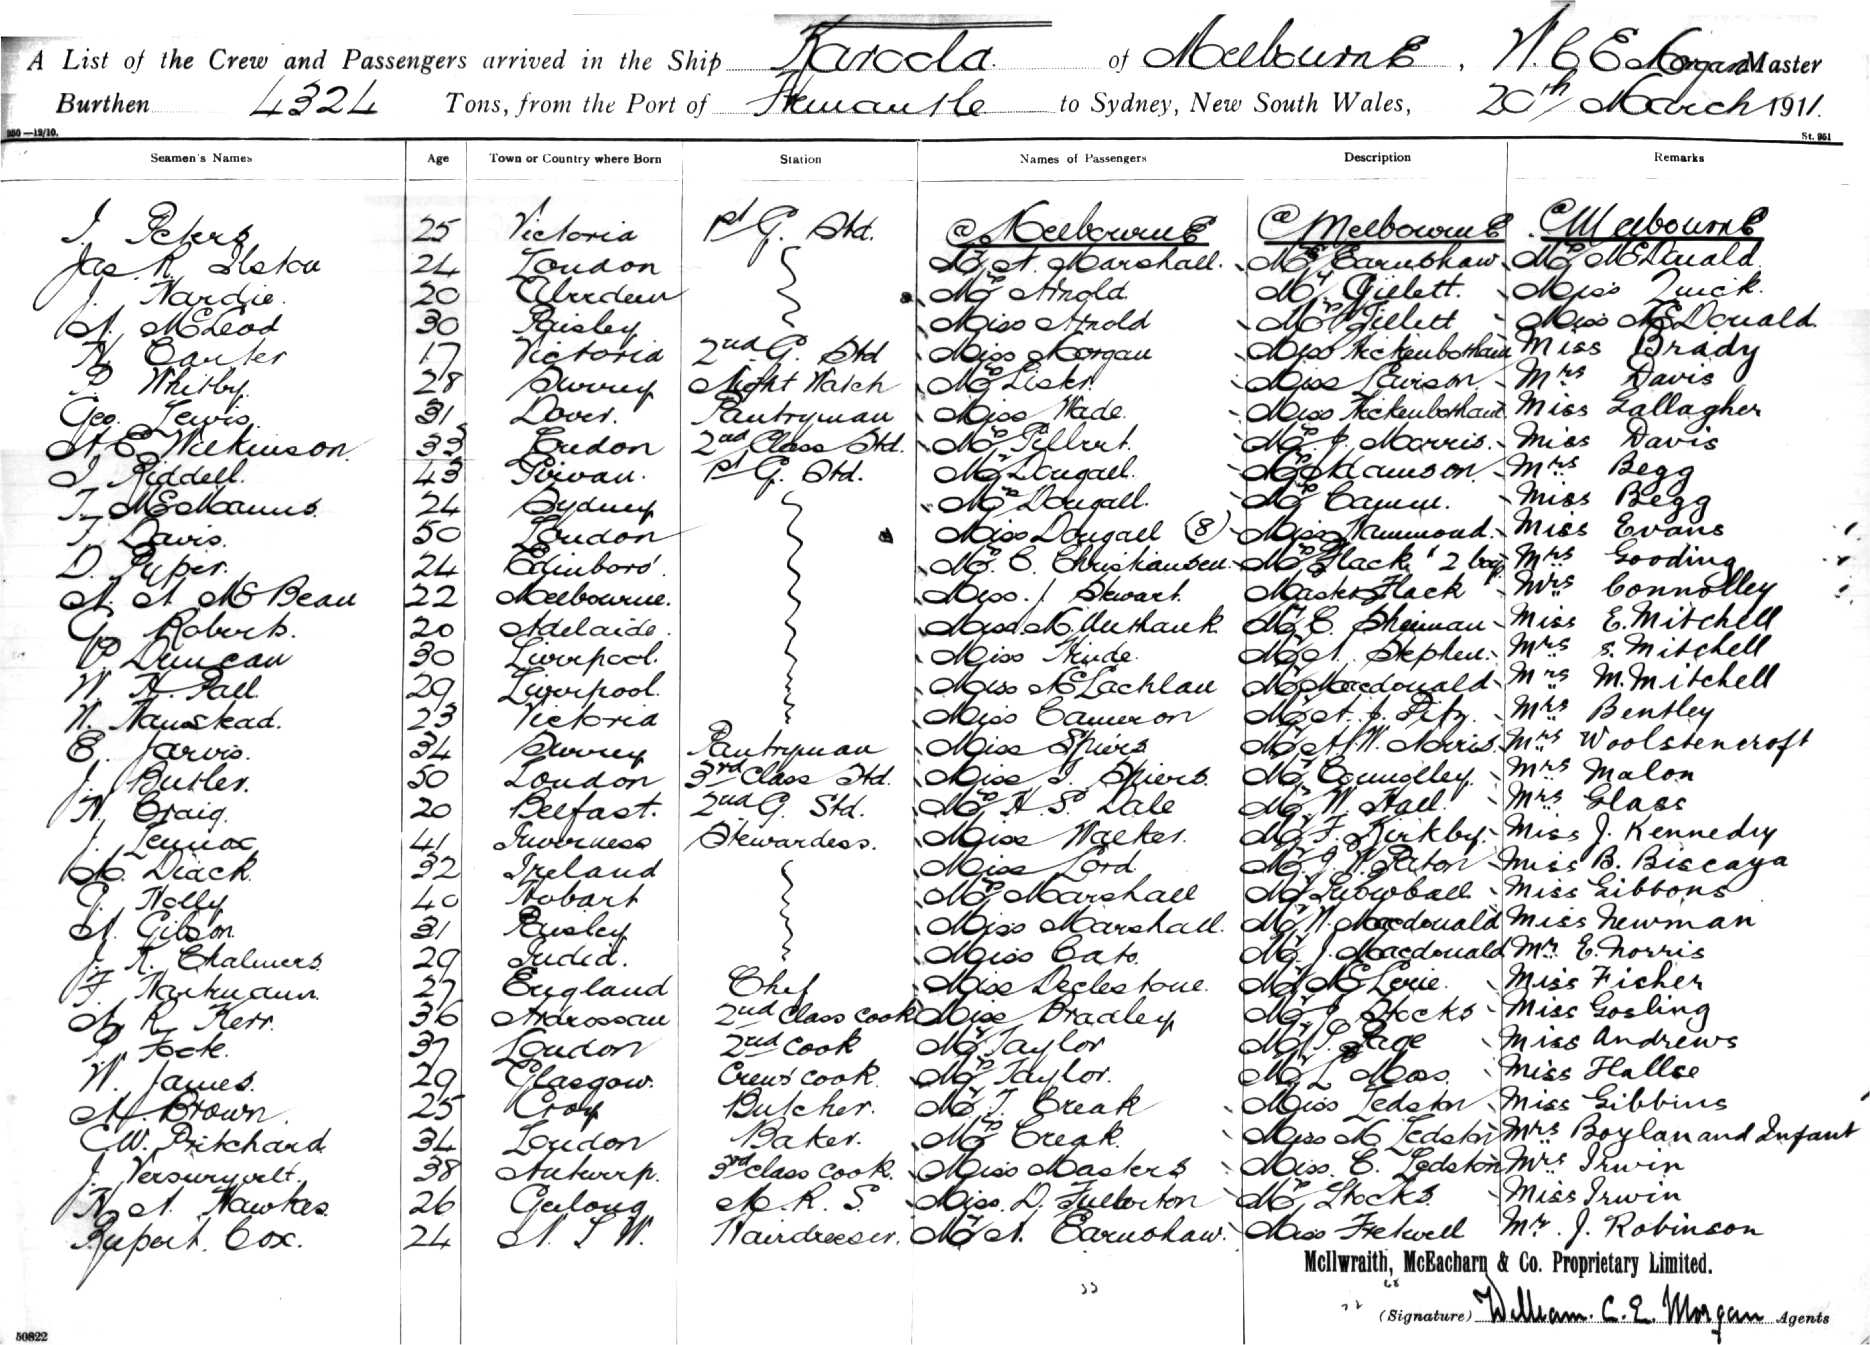 A List of the Crew and Passengers arrived in the Ship Karoola of Melbourne, W. C. E. Morgan Master
Burthen 4324 Tons, from the Port of Fremantle to Sydney, New South Wales, 20th March 1911.
350—12/10. St. 951
Seamen's Names Age Town or Country where Born Station Names of Passengers Description Remarks
J. Peters 25 Victoria 1st G. Std. @ Melbourne @ Melbourne @ Melbourne
Jas R. 24 London Mr A. Marshall. Mrs Earnshaw Mr McDonald
J. Hardie. 20 Aberdeen Mr Arnold Mr Gillett. Miss Quick.
A. McLeod 30 Paisley Miss Arnold Mrs Gillett Miss McDonald
H. Carter 17 Victoria 2nd G. Std Miss Morgan Miss Hickenbotham Miss Brady
P. Whitby. 28 Surrey Night Watch Mrs Lister. Miss Lewison Mrs Davis
Geo. Lewis. 31 Dover. Pantryman Miss Wade. Miss Hickenbotham Miss Gallagher
A. E. Wilkinson. 33 London 2nd Class Std. Mrs Gilbert. Mr J. Morris. Miss Davis
J. Riddell. 43 Girvan. 1st G. Std. Mr Dougall. Mrs Adamson. Mrs Begg
T. McManus. 24 Sydney Mrs Dougall. Mrs Camm. Miss Begg
T. Davis. 50 London Miss Dougall (8) Miss Hammond. Miss Evans
D. Pyper. 24 Edinboro'. Mrs. C. Christiansen. Mrs Flack & 2 boys Mrs Gooding
A. A. McBean 22 Melbourne. Miss. J. Stewart. Master Flack Mrs Connolley
G. Roberts. 20 Adelaide. Miss M. Mr C. Shierman Miss E. Mitchell
P. Duncan 30 Liverpool. Miss Hinde. Mr A. Stephen. Mrs S. Mitchell
W. H. Hall 29 Liverpool. Miss McLachlan Mr Macdonald Mrs M. Mitchell
W. Hamstead. 23 Victoria Miss Cameron Mr A. J. Pitz. Mrs Bentley
E. Jarvis. 34 Surrey Pantryman Miss Spiers Mr A. W. Norris. Mrs Woolstencroft
J. Butler. 50 London 3rd Class Std. Miss J. Spiers. Mr Connolley. Mrs Malon
H. Craig. 20 Belfast. 2nd G. Std. Mrs H. S. Dale Mr W. Hall. Mrs Glass
J. Lennox 41 Inverness Stewardess. Miss Walker. Mr F. Kirkby. Miss J. Kennedy
M. Diack. 32 Ireland Miss Lord. Mr J. W. Paton Miss B. Biscaya
G. Holly 40 Hobart Mrs Marshall Mr Snowball Miss Gibbons
A. Gibson 31 Paisley Miss Marshall. Mr W. Macdonald Miss Newman
J. K. Chalmers 29 India. Miss Cato. Mr J. Macdonald Mr E. Norris
F. Hartmann. 27 England Chef Miss Ecclestone. Mr McLevie. Miss Fisher
A. R. Kerr. 36 Ardrossan 2nd Class Cook Miss Bradley Mr J. Stocks Miss Gosling
P. Fock. 37 London 2nd Cook Mr Taylor Mr Page Miss Andrews
W. James. 29 Glasgow. Crews' cook Mrs Taylor. Mr L. Moss. Miss Hallse
A. Brown 25 Croy Butcher. Mr. T. Creak Miss Ledston Miss Gibbins
C.W. Pritchard 34 London Baker. Mrs Creak. Miss M Ledston Mrs Boylan and Infant
J. Versuryvelt. 38 Antwerp. 3rd class cook. Miss Masters Miss. C. Ledston Mrs Irwin
H. A. Hawkes. 26 Geelong M. R. S. Miss. D. Fullerton Mrs Stocks Miss Irwin
Rupert. Cox. 24 N. S. W. Hairdresser. Mr A. Earnshaw. Miss Fretwell Mr. J. Robinson
McIlwraith, McEacharn & Co. Proprietary Limited.
(Signature) William. C. E. Morgan Agents
50822